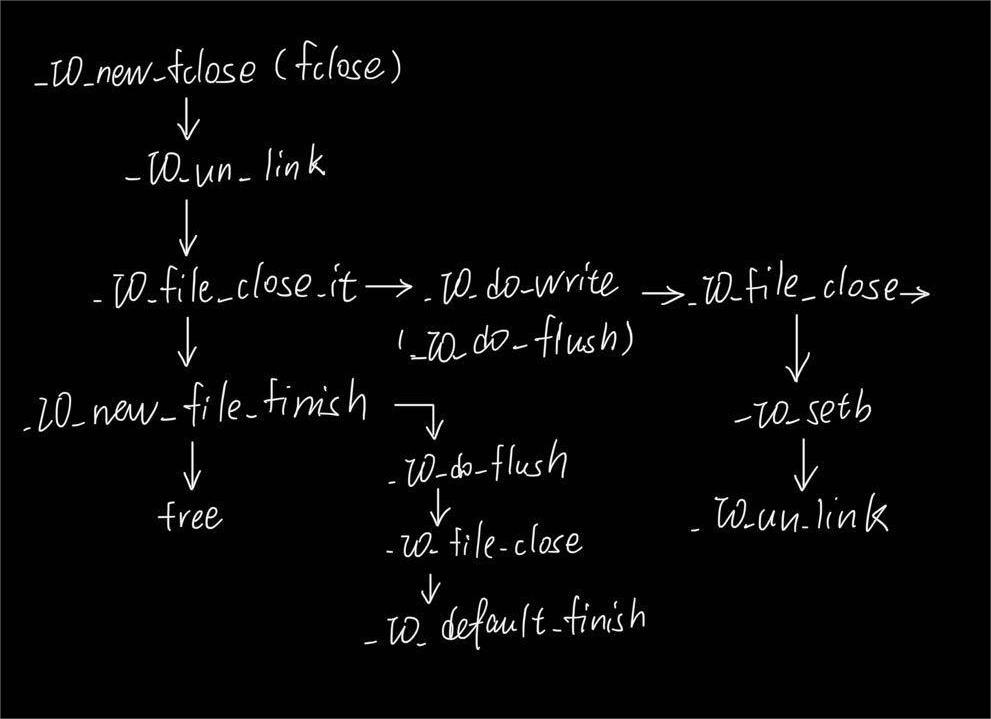 _IO_new_fclose (fclose)
↓
_IO_un_link
↓
_IO_file_close_it → _IO_do_write → _IO_file_close →
(_IO_do_flush)
↓
_IO_new_file_finish
↓
free
_IO_do_flush
↓
_IO_file_close
↓
_IO_default_finish
↓
_IO_setb
↓
_IO_un_link